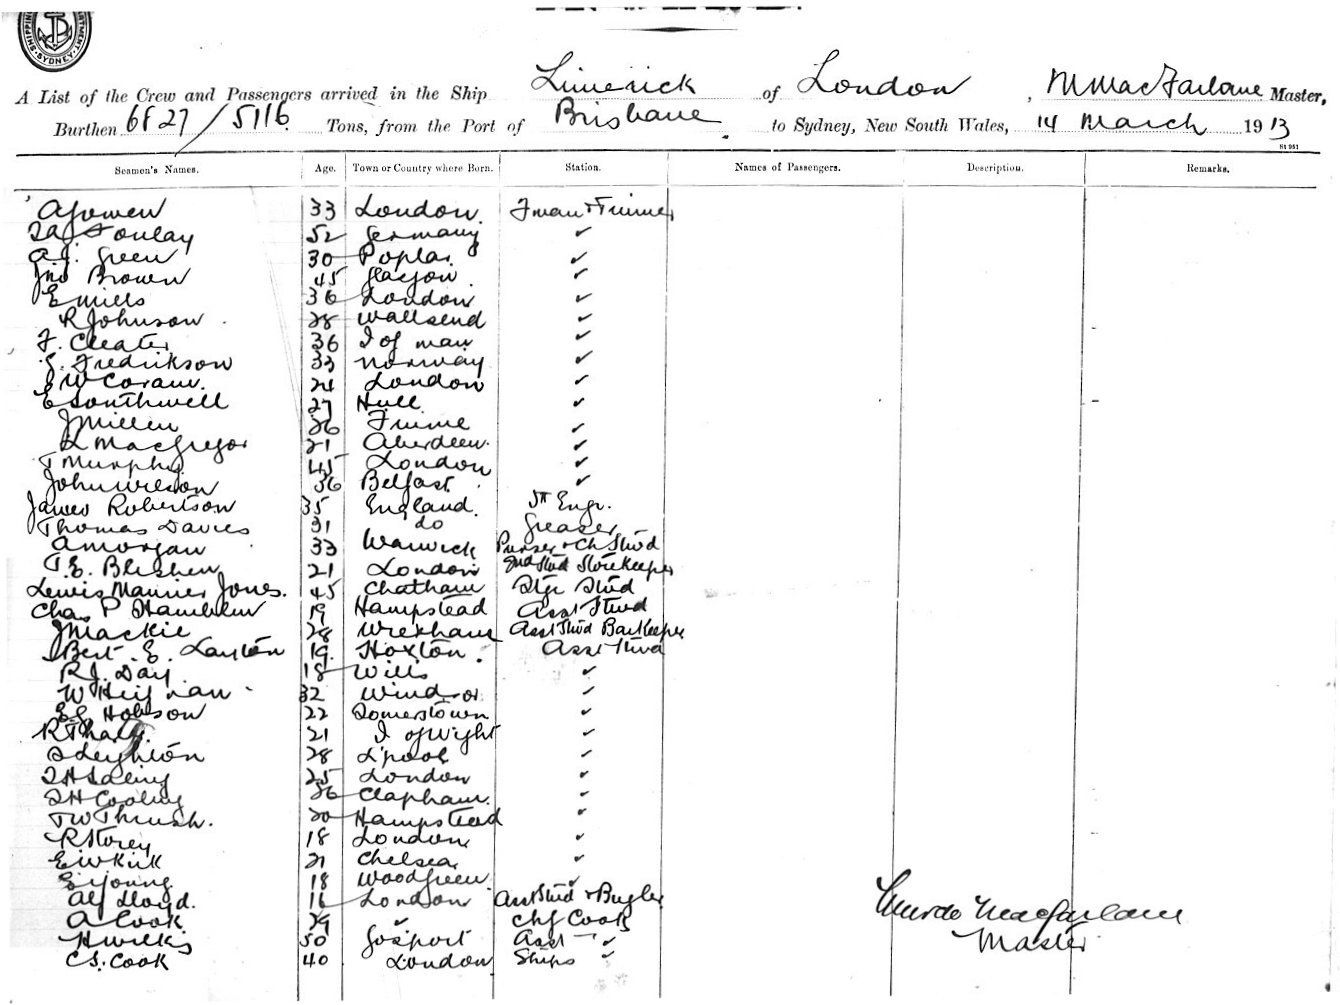 SHIPPING DEPARTMENT. SYDNEY.
A List of the Crew and Passengers arrived in the Ship Limerick of London, M MacFarlane Master,
Burthen 6827/5116 Tons, from the Port of Brisbane to Sydney, New South Wales, 14 March 1913
St 951
Seamen's Names. Age. Town or Country where Born. Station. Names of Passengers. Description. Remarks.
33 London Fman & Trimmer
52 Germany ✓
A.J. Green 30 Poplar ✓
Jno Brown 45 Glasgow ✓
E Mills 36 London ✓
R Johnson 28 Wallsend ✓
F. Cheater 36 I of Man ✓
Fredrikson 33 Norway ✓
E W Coram 24 London ✓
E Southwell 27 Hull ✓
J Millen 26 Fiume ✓
L MacGregor 21 Aberdeen ✓
T Murphy 45 London ✓
John Wilson 36 Belfast ✓
James Robertson 35 England 5th Engr.
Thomas Davies 31 do Greaser
A Morgan 33 Warwick Purser & Ch Stwd
T.E. 21 London 2nd Stwd Storekeeper
Lewis Jones. 45 Chatham Stge Stwd
Chas P Hamblin 19 Hampstead Asst Stwd
J Mackie 28 Wrexham Asst Stwd Barkeeper
Bert. E. Layton 19 Hoxton Asst Stwd
R.J. Day 18 Wilts ✓
W 32 Windsor ✓
E.G. Hobson 22 Somerstown ✓
R 21 I of Wight ✓
S Leighton 28 L'pool ✓
25 London ✓
Cooling 26 Clapham ✓
T W Thrush. 20 Hampstead ✓
R Storey 18 London ✓
E W Kirk 21 Chelsea ✓
E Young 18 Woodgreen ✓
Alf Lloyd. 16 London Asst Stwd & Bugler
A Cook 29 ✓ Chf Cook
H Wilkes 50 Gosport Asst ✓
C.S. Cook 40 London Ships ✓
Murdo Macfarlane
Master